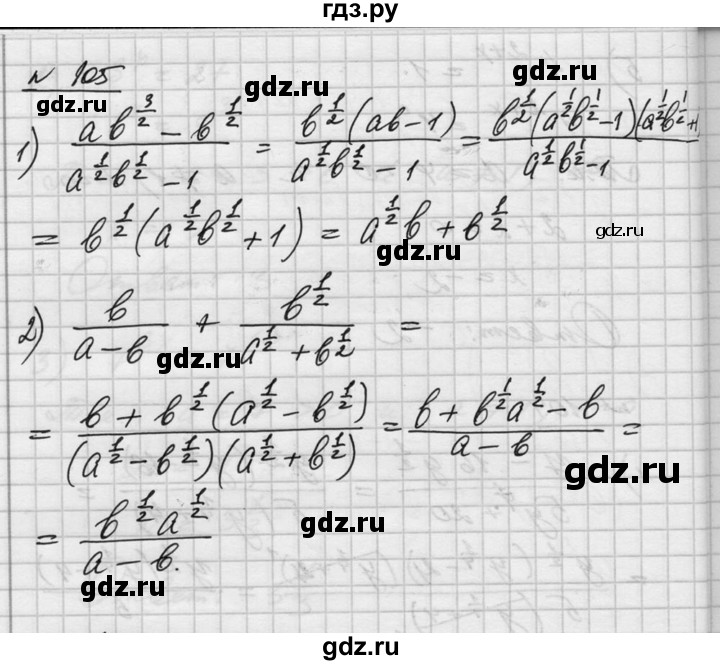 гдз.ру
№ 105
gdz.ru gdz.ru gdz.ru
1) (ab^{3/2} − b^{1/2})/(a^{1/2}b^{1/2} − 1) = (b^{1/2}(ab − 1))/(a^{1/2}b^{1/2} − 1) = (b^{1/2}(a^{1/2}b^{1/2} − 1)(a^{1/2}b^{1/2} + 1))/(a^{1/2}b^{1/2} − 1)
= b^{1/2}(a^{1/2}b^{1/2} + 1) = a^{1/2}b + b^{1/2}
gdz.ru gdz.ru
2) b/(a − b) + b^{1/2}/(a^{1/2} + b^{1/2}) =
gdz.ru gdz.ru
= (b + b^{1/2}(a^{1/2} − b^{1/2}))/((a^{1/2} − b^{1/2})(a^{1/2} + b^{1/2})) = (b + b^{1/2}a^{1/2} − b)/(a − b) =
gdz.ru
= (b^{1/2}a^{1/2})/(a − b).
gdz.ru
gdz.ru
gdz.ru